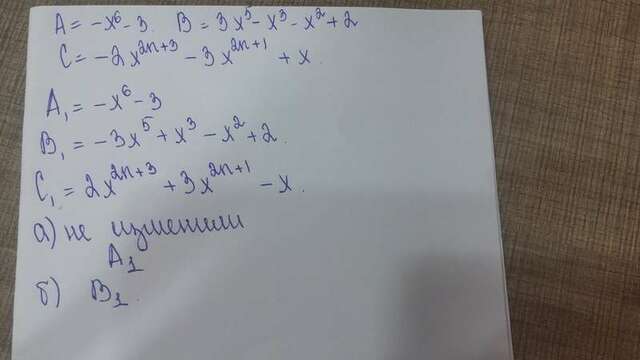 A = -x⁶ - 3. B = 3x⁵ - x³ - x² + 2
C = -2x²ⁿ⁺³ - 3x²ⁿ⁺¹ + x
A₁ = -x⁶ - 3
B₁ = -3x⁵ + x³ - x² + 2.
C₁ = 2x²ⁿ⁺³ + 3x²ⁿ⁺¹ - x.
а) не изменит
A₁
б) B₁